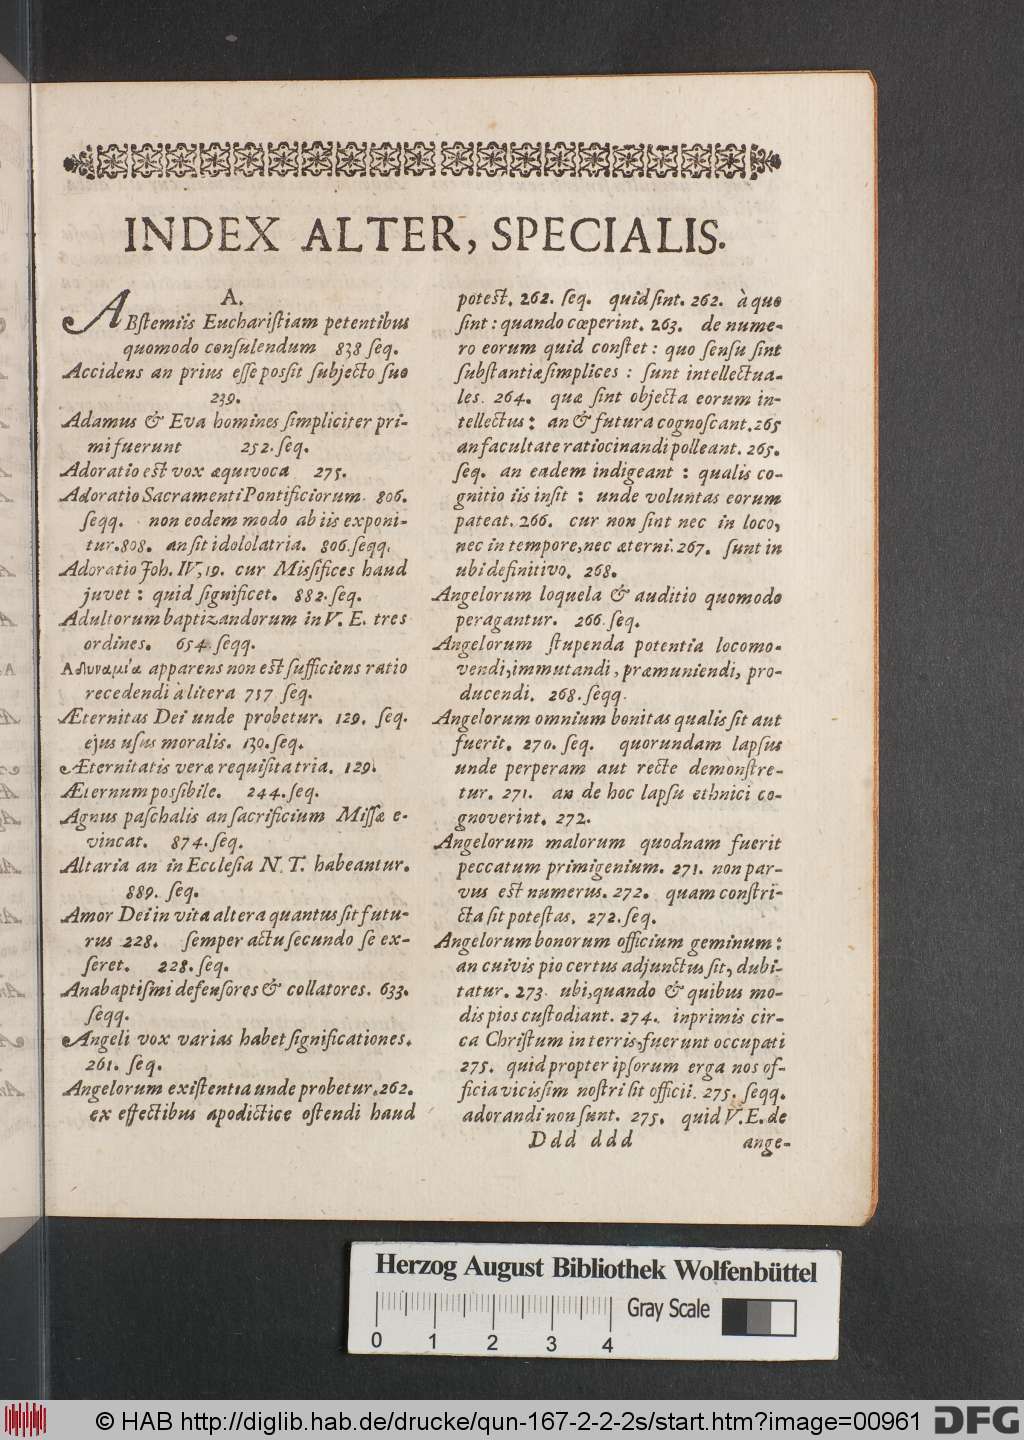 INDEX ALTER, SPECIALIS.
A.
ABſtemiis Euchariſtiam petentibus
quomodo conſulendum 838 ſeq.
Accidens an prius eſſe poſſit ſubjecto ſuo
239.
Adamus & Eva homines ſimpliciter pri-
mi fuerunt 252. ſeq.
Adoratio est vox æquivoca 275.
Adoratio Sacramenti Pontificiorum. 806.
ſeqq. non eodem modo ab iis exponi-
tur. 808. an ſit idololatria. 806. ſeqq.
Adoratio Joh. IV, 19. cur Miſſifices haud
juvet : quid ſignificet. 882. ſeq.
Adultorum baptizandorum in V. E. tres
ordines. 654. ſeqq.
Ἀδυναμία apparens non est ſufficiens ratio
recedendi à litera 757. ſeq.
Æternitas Dei unde probetur. 129. ſeq.
ejus uſus moralis. 130. ſeq.
Æternitatis veræ requiſita tria. 129.
Æternum poſſibile. 244. ſeq.
Agnus paſchalis an ſacrificium Miſſæ e-
vincat. 874. ſeq.
Altaria an in Eccleſia N. T. habeantur.
889. ſeq.
Amor Dei in vita altera quantus ſit futu-
rus 228. ſemper actu ſecundo ſe ex-
ſeret. 228. ſeq.
Anabaptiſmi defenſores & collatores. 633.
ſeqq.
Angeli vox varias habet ſignificationes.
261. ſeq.
Angelorum exiſtentia unde probetur. 262.
ex effectibus apodictice oſtendi haud
potest. 262. ſeq. quid ſint. 262. à quo
ſint : quando cœperint. 263. de nume-
ro eorum quid conſtet : quo ſenſu ſint
ſubſtantiæ ſimplices : ſunt intellectua-
les. 264. quæ ſint objecta eorum in-
tellectus : an & futura cognoſcant. 265
an facultate ratiocinandi polleant. 265.
ſeq. an eadem indigeant : qualis co-
gnitio iis inſit : unde voluntas eorum
pateat. 266. cur non ſint nec in loco,
nec in tempore, nec æterni. 267. ſunt in
ubi definitivo. 268.
Angelorum loquela & auditio quomodo
peragantur. 266. ſeq.
Angelorum ſtupenda potentia locomo-
vendi, immutandi, præmuniendi, pro-
ducendi. 268. ſeqq.
Angelorum omnium bonitas qualis ſit aut
fuerit. 270. ſeq. quorundam lapſus
unde perperam aut recte demonſtre-
tur. 271. an de hoc lapſu ethnici co-
gnoverint. 272.
Angelorum malorum quodnam fuerit
peccatum primigenium. 271. non par-
vus est numerus. 272. quam conſtri-
cta ſit poteſtas. 272. ſeq.
Angelorum bonorum officium geminum :
an cuivis pio certus adjunctus ſit, dubi-
tatur. 273. ubi, quando & quibus mo-
dis pios cuſtodiant. 274. inprimis cir-
ca Chriſtum in terris, fuerunt occupati
275. quid propter ipſorum erga nos of-
ficia viciſſim noſtri ſit officii. 275. ſeqq.
adorandi non ſunt. 275. quid V. E. de
Ddd ddd ange-
Herzog August Bibliothek Wolfenbüttel
Gray Scale
0 1 2 3 4
© HAB http://diglib.hab.de/drucke/qun-167-2-2-2s/start.htm?image=00961 DFG